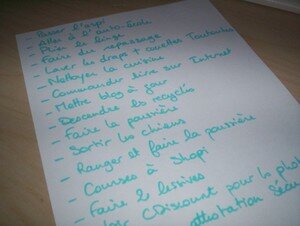 - Passer l'aspi
- Aller à l'auto-école
- Plier le linge
- Faire du repassage
- Laver les draps + couettes Toutoutes
- Nettoyer la cuisine
- Commander livre sur Internet
- Mettre blog à jour
- Descendre les recyclés
- Faire la poussière
- Sortir les chiens
- Ranger et faire la poussière
- Courses à Shopi
- Faire 2 lessives
CDiscount pour la
attestation